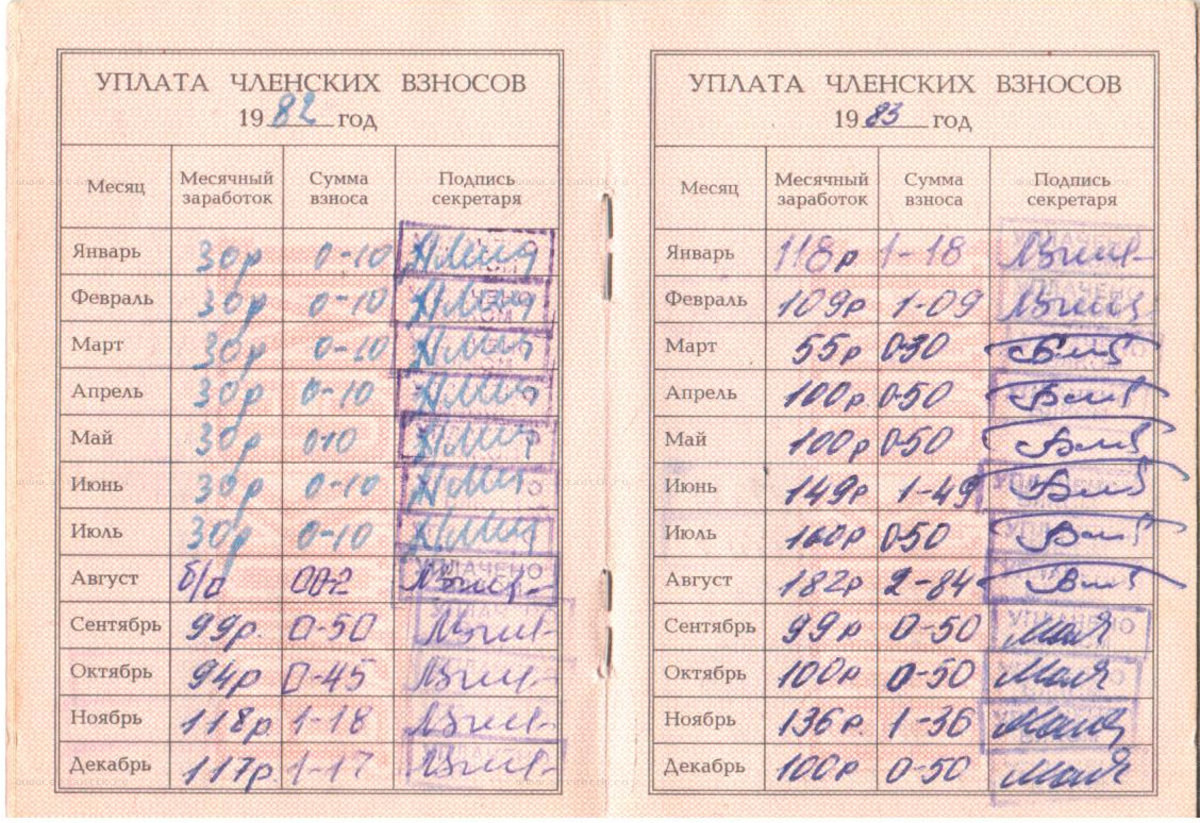 УПЛАТА ЧЛЕНСКИХ ВЗНОСОВ
1982 год
Месяц Месячный заработок Сумма взноса Подпись секретаря
Январь 30р 0-10
Февраль 30р 0-10
Март 30р 0-10
Апрель 30р 0-10
Май 30р 0-10
Июнь 30р 0-10
Июль 30р 0-10
Август б/р 00-2 УПЛАЧЕНО
Сентябрь 99р. 0-50 УПЛАЧЕНО
Октябрь 94р 0-45
Ноябрь 118р. 1-18
Декабрь 117р. 1-17
УПЛАТА ЧЛЕНСКИХ ВЗНОСОВ
1983 год
Месяц Месячный заработок Сумма взноса Подпись секретаря
Январь 118р 1-18 УПЛАЧЕНО
Февраль 109р 1-09 УПЛАЧЕНО
Март 55р 0-30
Апрель 100р 0-50
Май 100р 0-50
Июнь 149р 1-49 УПЛАЧЕНО
Июль 160р 0-50 УПЛАЧЕНО
Август 182р 2-84
Сентябрь 99р 0-50 УПЛАЧЕНО
Октябрь 100р 0-50
Ноябрь 136р. 1-36
Декабрь 100р 0-50